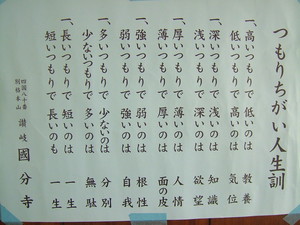 つもりちがい人生訓
一、高いつもりで 低いのは 教養
低いつもりで 高いのは 気位
一、深いつもりで 浅いのは 知識
浅いつもりで 深いのは 欲望
一、厚いつもりで 薄いのは 人情
薄いつもりで 厚いのは 面の皮
一、強いつもりで 弱いのは 根性
弱いつもりで 強いのは 自我
一、多いつもりで 少ないのは 分別
少ないつもりで 多いのは 無駄
一、長いつもりで 短いのは 一生
短いつもりで 長いのも 一生
四国八十番
別格本山
讃岐 國分寺